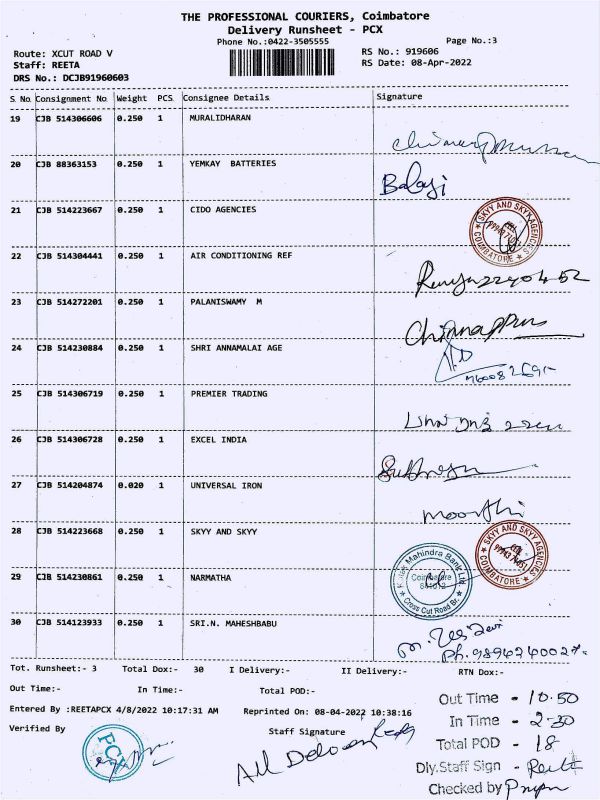 THE PROFESSIONAL COURIERS, Coimbatore
Delivery Runsheet - PCX
Phone No.:0422-3505555
Page No.:3
Route: XCUT ROAD V
RS No.: 919606
Staff: REETA
RS Date: 08-Apr-2022
DRS No.: DCJB91960603
S No Consignment No Weight PCS Consignee Details Signature
19 CJB 514306606 0.250 1 MURALIDHARAN
20 CJB 88363153 0.250 1 YEMKAY BATTERIES Balaji
21 CJB 514223667 0.250 1 CIDO AGENCIES
SKYY AND SKYY AGENCIES
COIMBATORE
22 CJB 514304441 0.250 1 AIR CONDITIONING REF
23 CJB 514272201 0.250 1 PALANISWAMY M
24 CJB 514230884 0.250 1 SHRI ANNAMALAI AGE
25 CJB 514306719 0.250 1 PREMIER TRADING
26 CJB 514306728 0.250 1 EXCEL INDIA
27 CJB 514204874 0.020 1 UNIVERSAL IRON Moorthi
28 CJB 514223668 0.250 1 SKYY AND SKYY
SKYY AND SKYY AGENCIES
COIMBATORE
29 CJB 514230861 0.250 1 NARMATHA
Kotak Mahindra Bank Ltd
Cross Cut Road Br.
30 CJB 514123933 0.250 1 SRI.N. MAHESHBABU
Ph. 9894240027
Tot. Runsheet:- 3 Total Dox:- 30 I Delivery:- II Delivery:- RTN Dox:-
Out Time:- In Time:- Total POD:-
Entered By :REETAPCX 4/8/2022 10:17:31 AM Reprinted On: 08-04-2022 10:38:16
Verified By Staff Signature
PCX
Out Time - 10.50
In Time - 2-30
Total POD - 18
Dly.Staff Sign - Reeta
Checked by